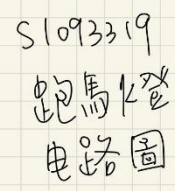 S1093319
跑馬燈
电路圖